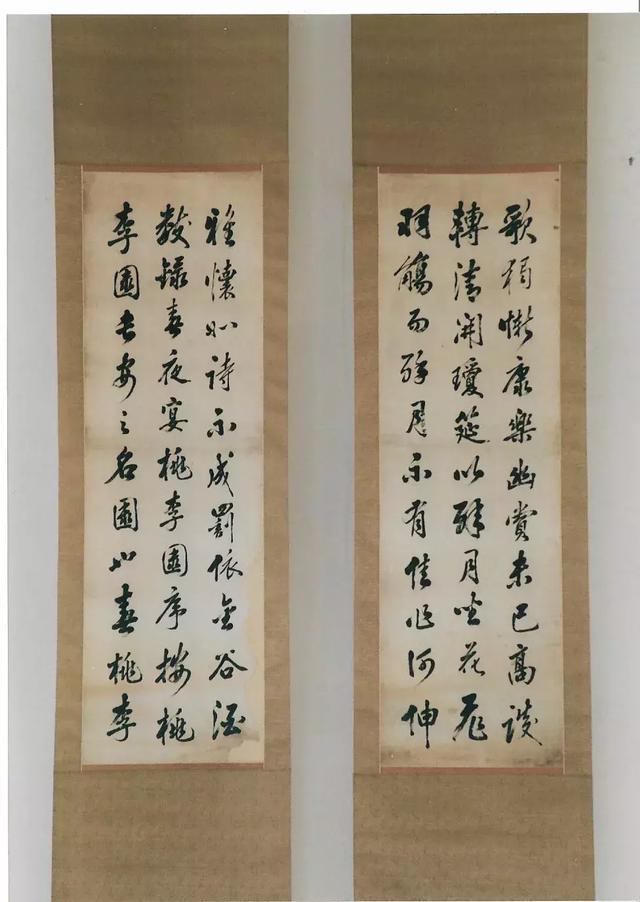 歌獨慚康樂幽賞未已高談
轉清開瓊筵以醉月坐花飛
羽觴而醉月不有佳作何伸
雅懷如詩不成罰依金谷酒
數錄春夜宴桃李園序按桃
李園長安之名園也春桃李